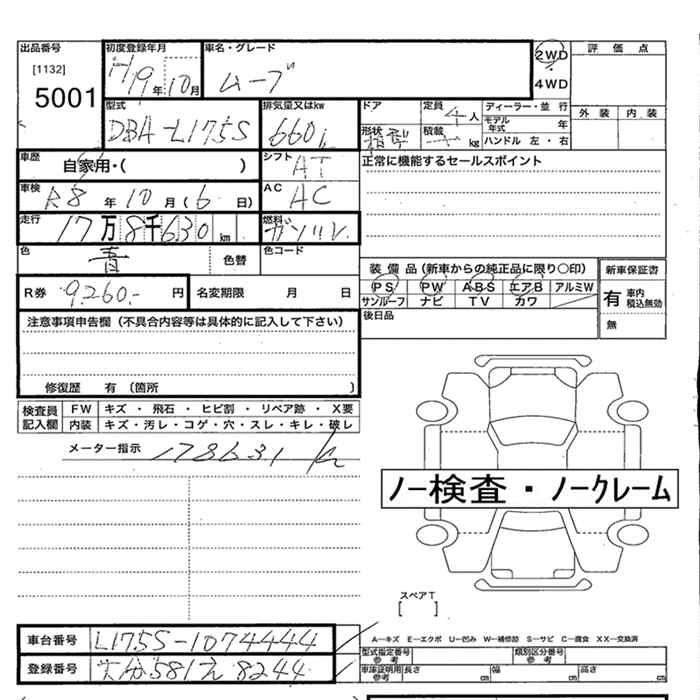 出品番号
[1132]
5001
初度登録年月
H19年10月
車名・グレード
ムーブ
2WD
4WD
評価点
外装 内装
型式
DBA-L175S
排気量又はkw
660
ドア
形状
定員 4人
積載 kg
ディーラー・並行
モデル年式 年
ハンドル 左・右
車歴
自家用・( )
シフト AT
正常に機能するセールスポイント
車検
R8年10月(6日)
AC AC
走行
17万8千630km
燃料
ガソリン
色 青 色替
色コード
R券 9,260.-円
名変期限 月 日
装備品(新車からの純正品に限り○印)
PS PW ABS エアB アルミW
サンルーフ ナビ TV カワ
新車保証書
有 車内積込無効
無
後日品
注意事項申告欄(不具合内容等は具体的に記入して下さい)
修復歴 有(箇所 )
検査員記入欄
FW キズ・飛石・ヒビ割・リペア跡・X要
内装 キズ・汚レ・コゲ・穴・スレ・キレ・破レ
メーター指示 178631
ノー検査・ノークレーム
スペアT
[ ]
A―キズ E―エクボ U―凹み W―補修跡 S―サビ C―腐食 XX―交換済
車台番号 L175S-1074444
登録番号 大分581え8244
型式指定番号 参考
類別区分番号 参考
車庫証明用 参考 長さ cm 幅 cm 高さ cm